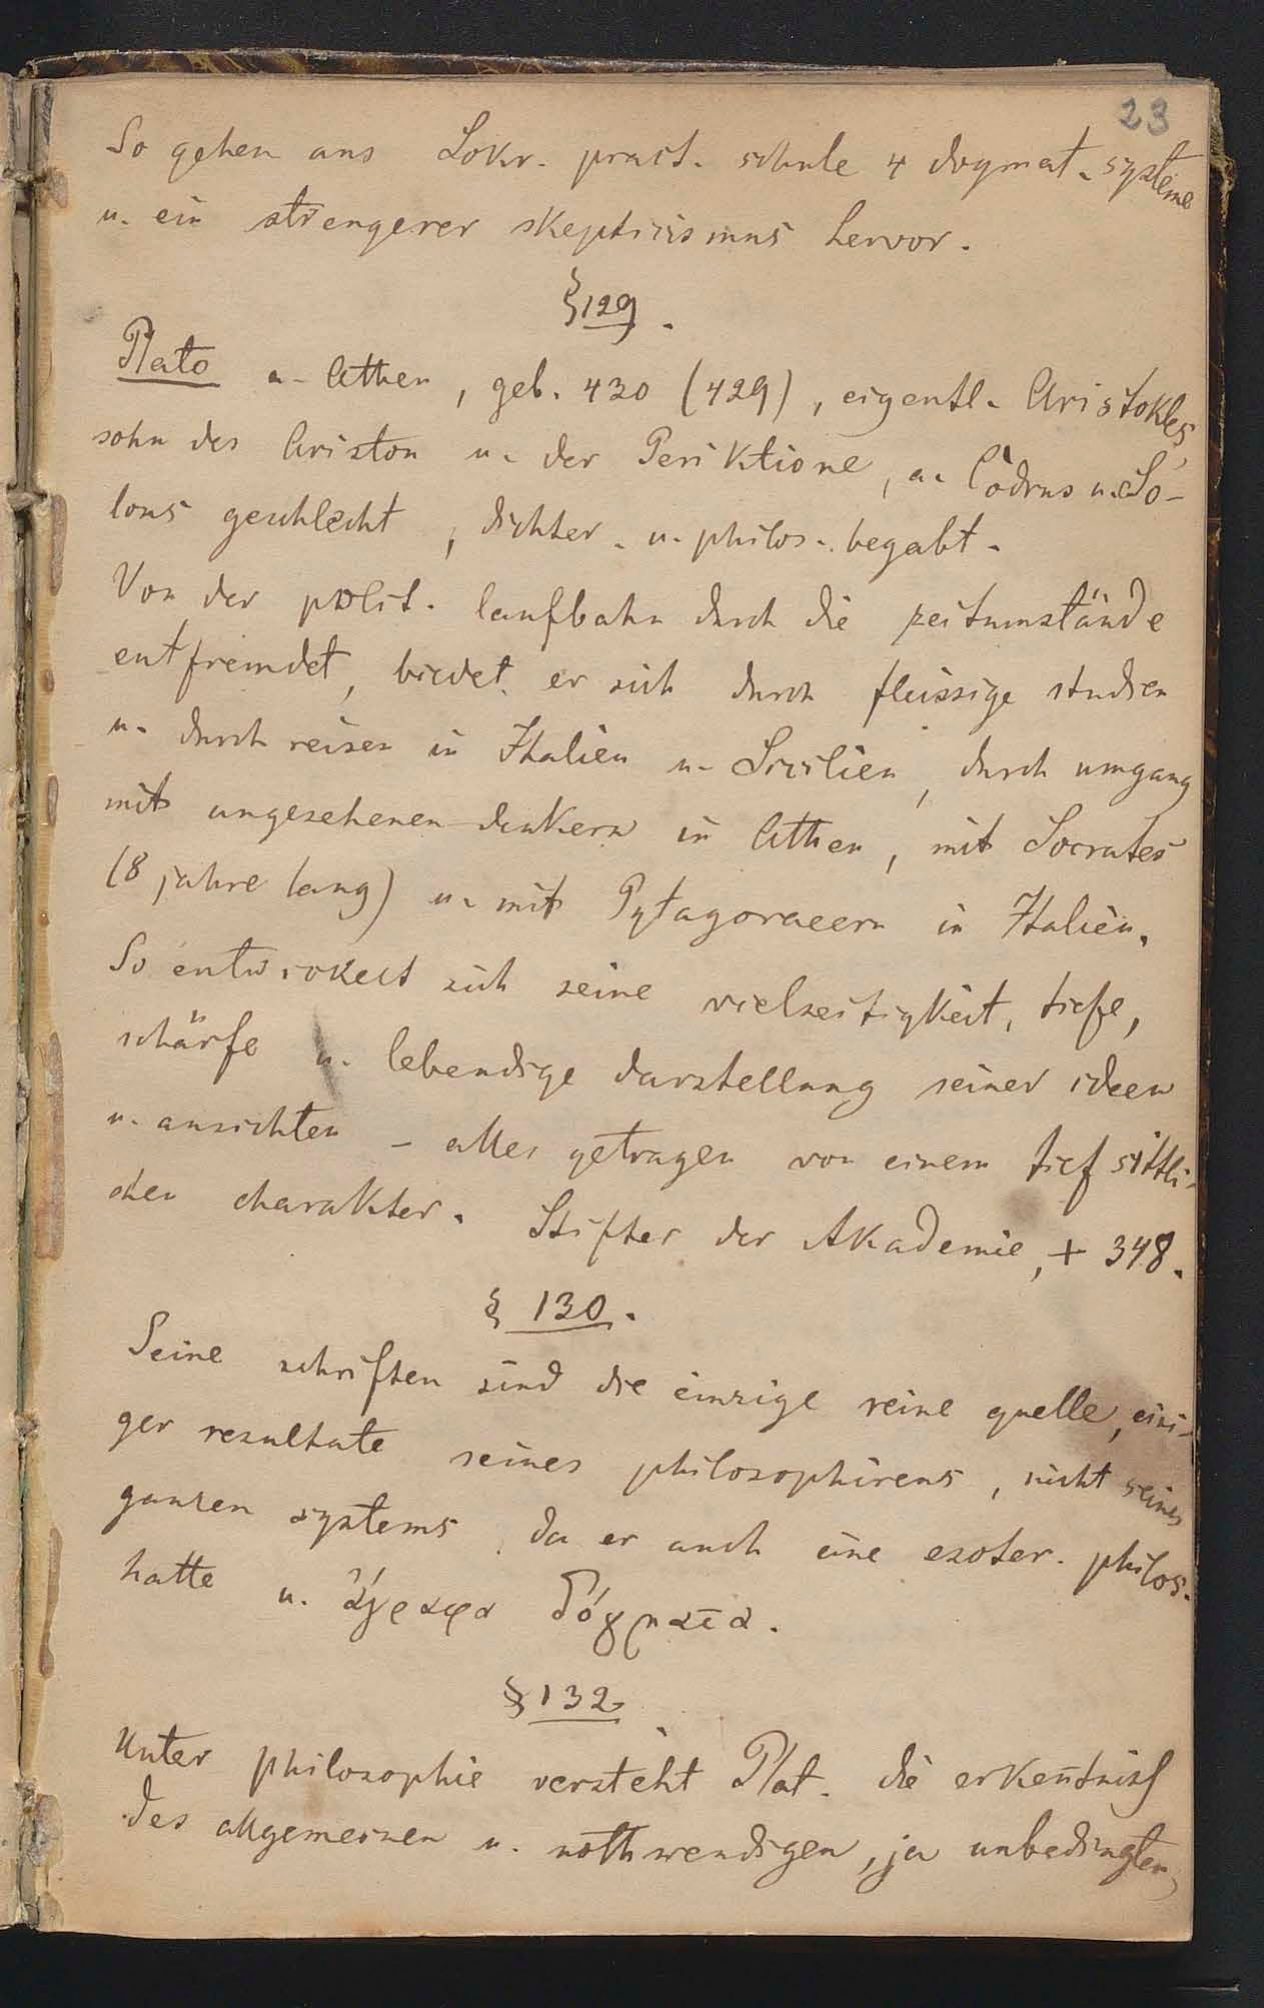 23
So gehen aus Sokr. pract. schule 4 dogmat. systeme
u. ein strengerer skepticismus hervor.
§129.
Plato a. Athen, geb. 430 (429), eigentl. Aristokles,
sohn des Ariston u. der Periktione, a. Codrus u. So-
lons geschlecht, dichter. u. philos. begabt.
Von der polit. laufbahn durch die zeitumstände
entfremdet, bildet er sich durch fleissige studien
u. durch reisen in Italien u. Sicilien, durch umgang
mit angesehenen denkern in Athen, mit Socrates
(8 jahre lang) u. mit Pytagoraeern in Italien.
So entwickelt sich seine vielseitigkeit, tiefe,
schärfe u. lebendige darstellung seiner ideen
u. ansichten – alles getragen von einem tief sittli-
chen charakter. Stifter der Akademie, + 348.
§ 130.
Seine schriften sind die einzige reine quelle, eini-
ger resultate seines philosophirens, nicht seines
ganzen systems, da er auch eine esoter. philos.
hatte u. ἄγραφα δόγματα.
§ 132.
Unter philosophie versteht Plat. die erken̄tniss
des allgemeinen u. nothwendigen, ja unbedingten,